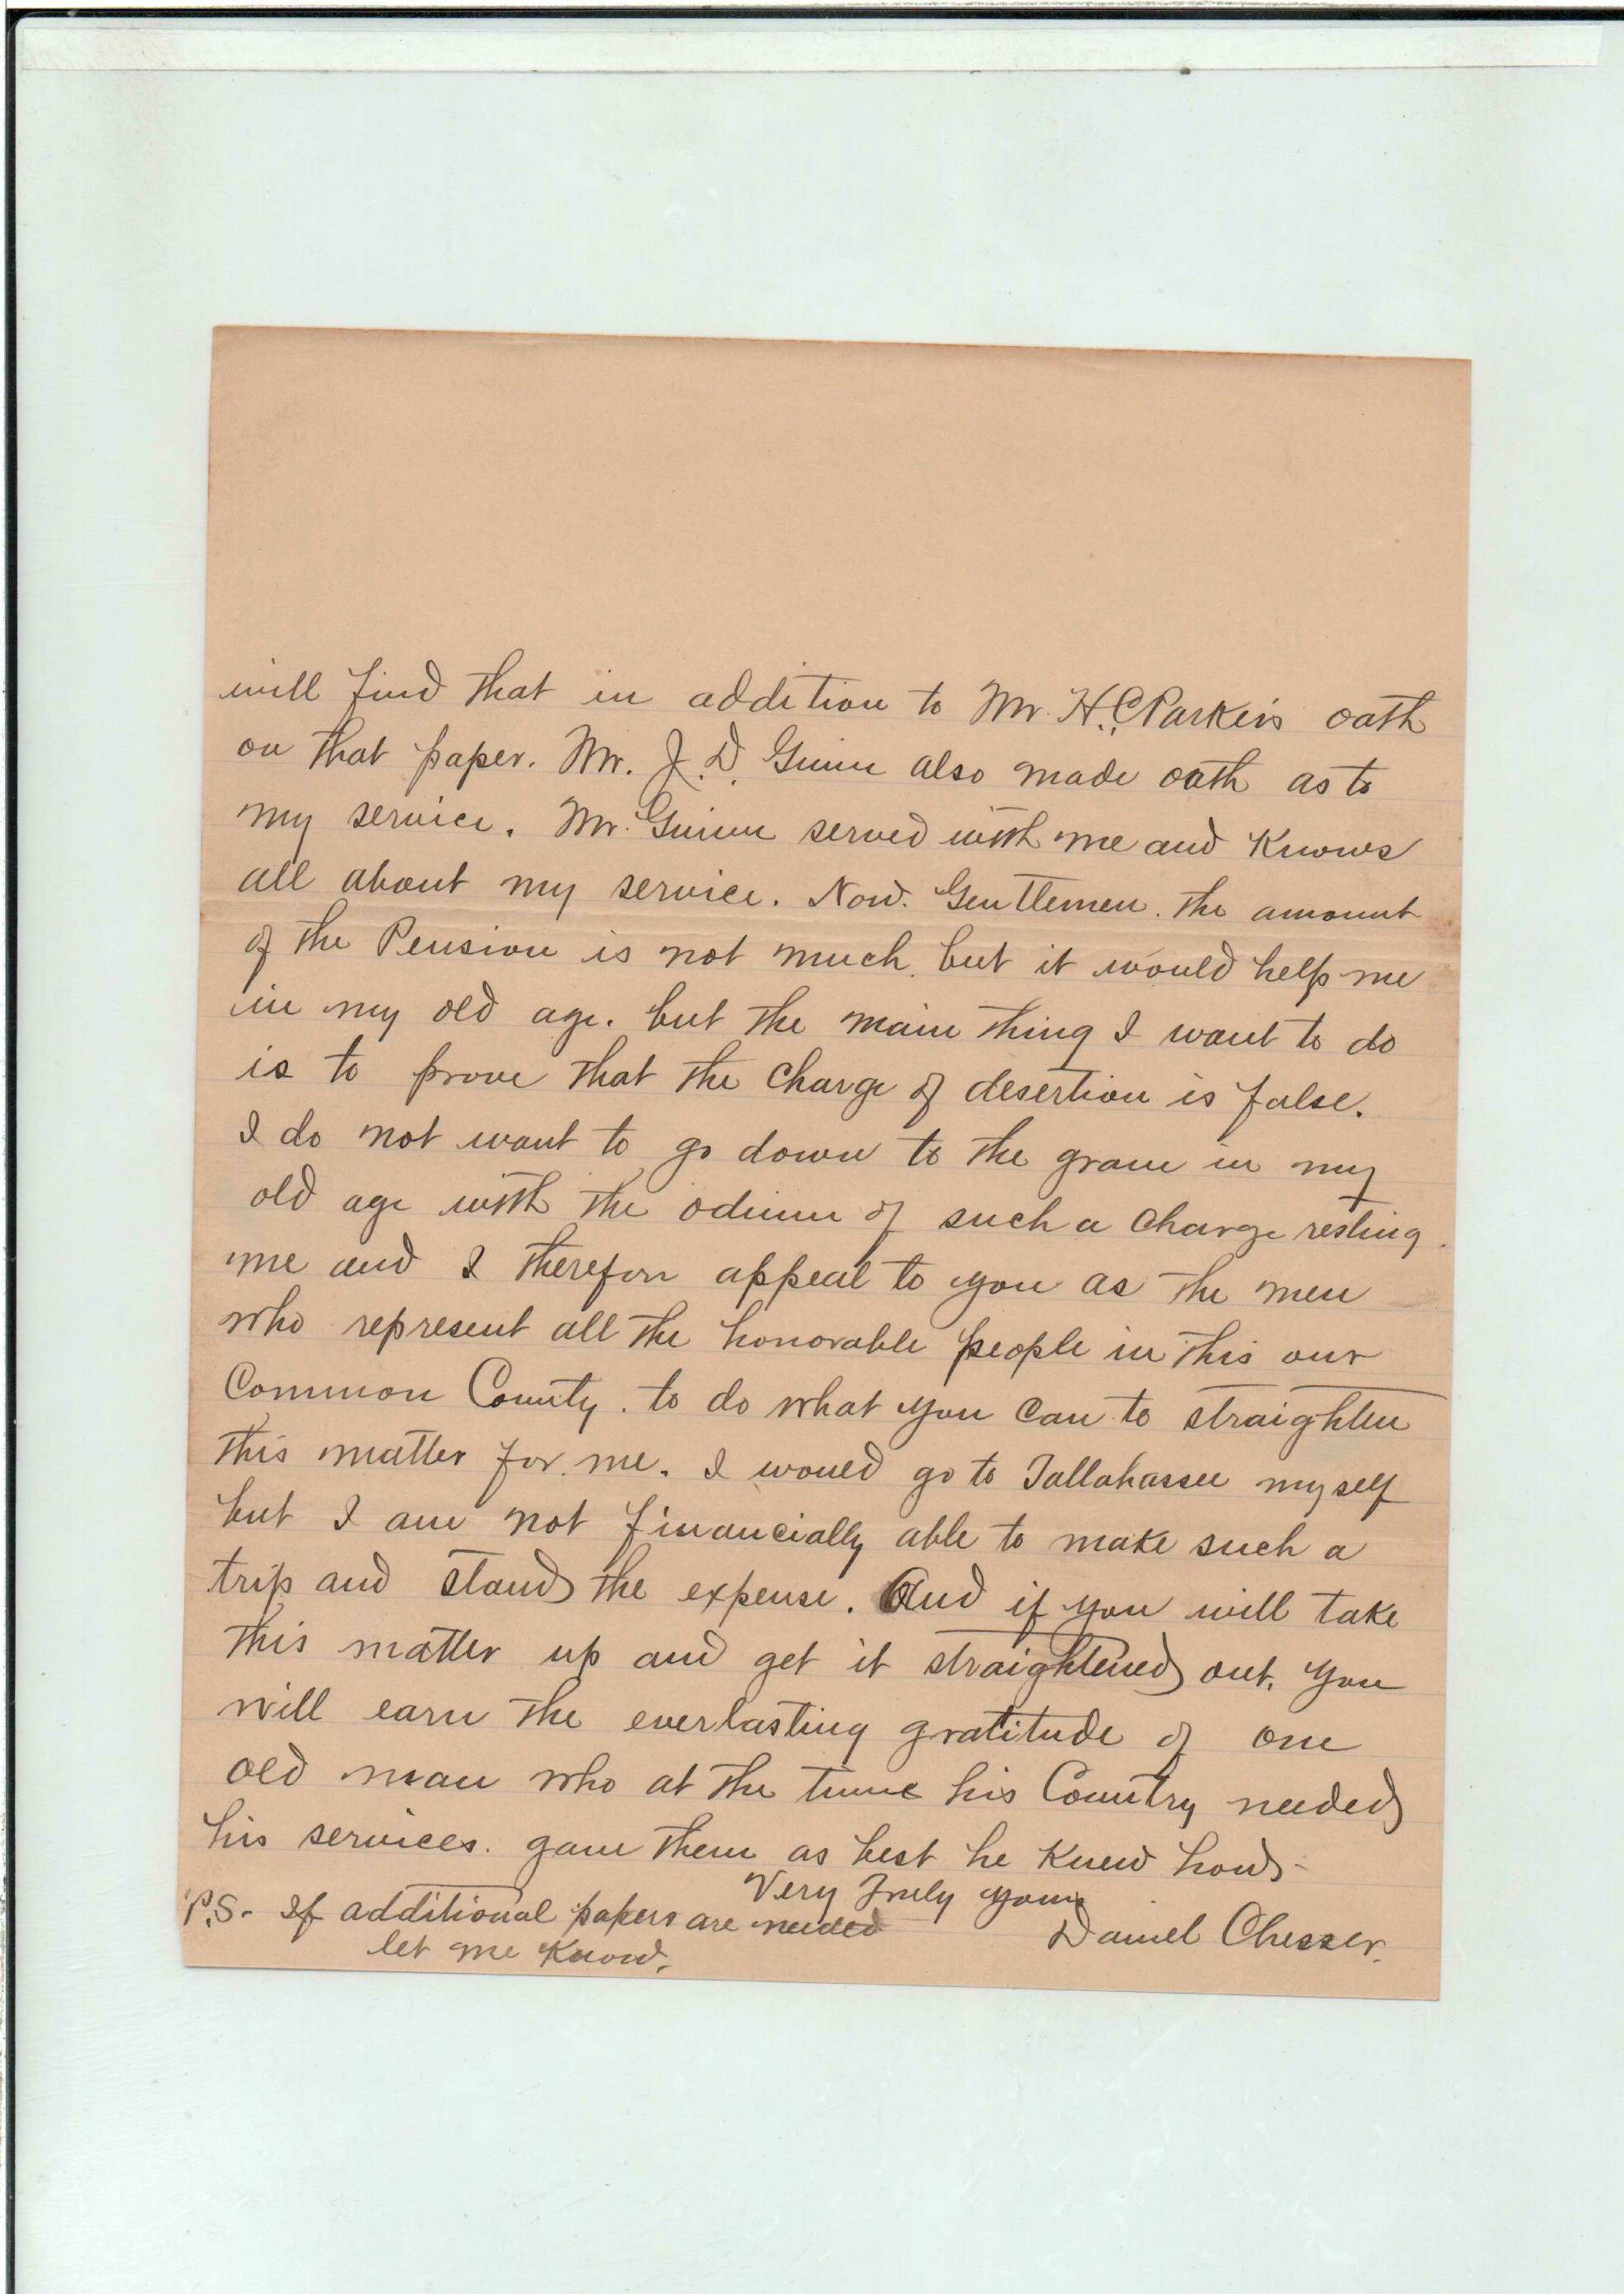 will find that in addition to Mr. H. C. Parker's oath
on that paper. Mr. J. D. Guinn also made oath as to
my service. Mr. Guinn served with me and knows
all about my service. Now. Gentlemen. the amount
of the Pension is not much. but it would help me
in my old age. but the main thing I want to do
is to prove that the charge of desertion is false.
I do not want to go down to the grave in my
old age with the odium of such a charge resting
me and I therefore appeal to you as the men
who represent all the honorable people in this our
Common County. to do what you can to straighten
this matter for me. I would go to Tallahassee myself
but I am not financially able to make such a
trip and stand the expense. And if you will take
this matter up and get it straightened out. you
will earn the everlasting gratitude of one
old man who at the time his Country needed
his services. gave them as best he knew how-
Very Truly yours
Daniel Chesser.
P.S. If additional papers are needed
let me know.